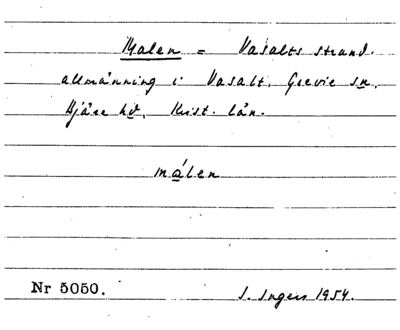 Malen = Vasalts strand.
allmänning i Vasalt, Grevie sn,
Bjäre hd, Krist. län.
målen
Nr 5050.
S. Ingers 1954.